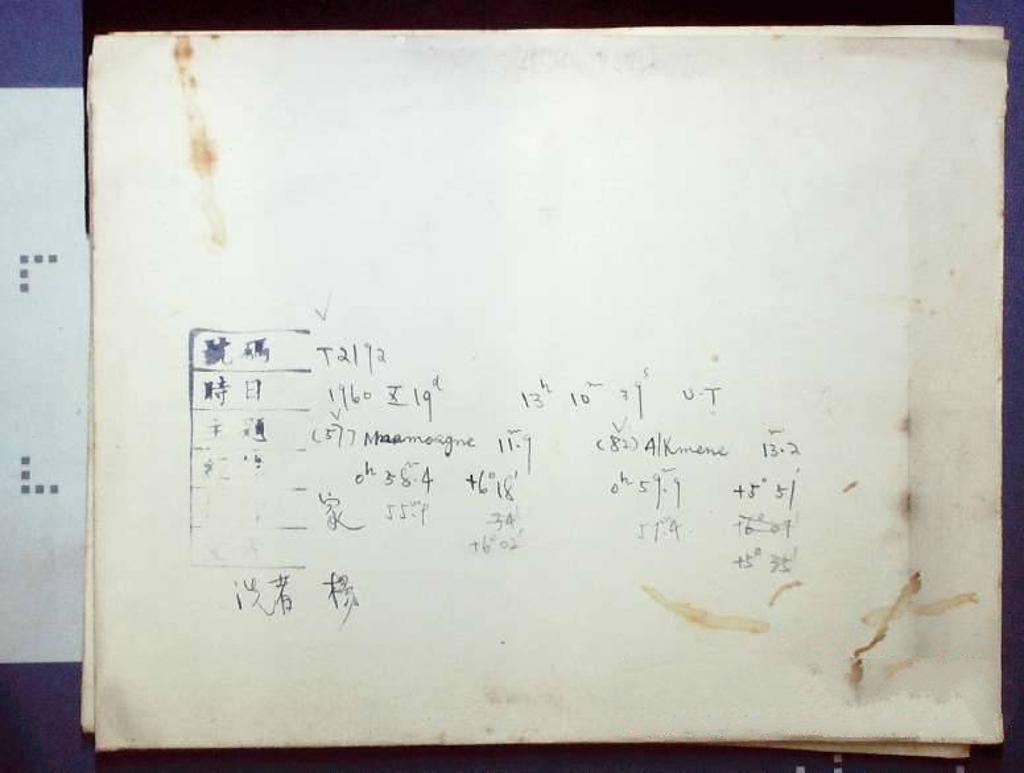 號碼 T2192
時日 1960 X 19ᵈ 13ʰ 10ᵐ 39ˢ U.T
主題 (57) Mnemosyne 11ᵐ.9 (82) Alkmene 13.2
0ʰ 58ᵐ.4 +6° 18′ 0ʰ 59ᵐ.9 +5° 51′
家 55ᵐ.9 34′ 57ᵐ.4 +6° 07′
+6° 02′ +5° 35′
洗者 楊